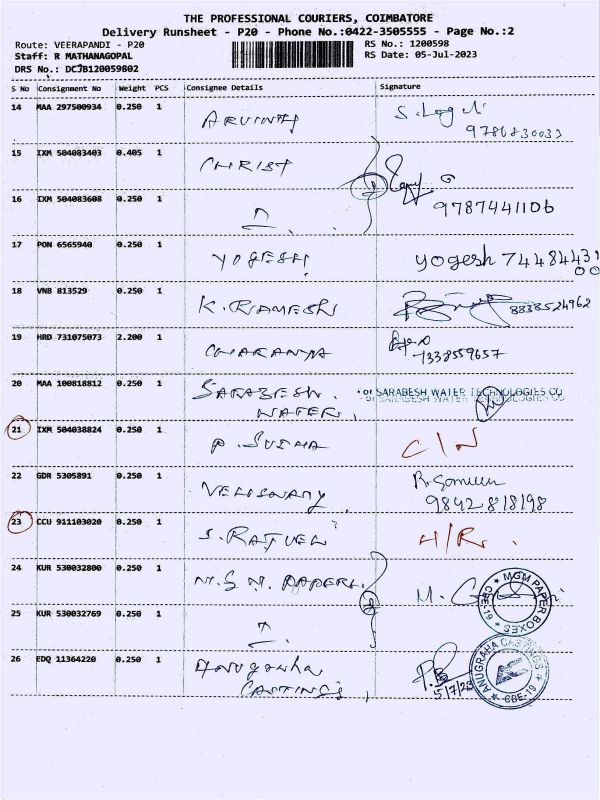 THE PROFESSIONAL COURIERS, COIMBATORE
Delivery Runsheet - P20 - Phone No.:0422-3505555 - Page No.:2
Route: VEERAPANDI - P20 RS No.: 1200598
Staff: R MATHANAGOPAL RS Date: 05-Jul-2023
DRS No.: DCJB120059802
S No Consignment No Weight PCS Consignee Details Signature
14 MAA 297500934 0.250 1 ARVINTH
9786830033
15 IXM 504083403 0.405 1 CHRIST
16 IXM 504083608 0.250 1
9787441106
17 PON 6565940 0.250 1 YOGESH yogesh 74484431
00
18 VNB 813529 0.250 1 K. RAMESH 8838524962
19 HRD 731075073 2.200 1 CHARANYA
7338559657
20 MAA 100818812 0.250 1 SARABESH or SARABESH WATER TECHNOLOGIES CO
WATER or SARABESH WATER TECHNOLOGIES CO
21 IXM 504038824 0.250 1 P. SUDHA C/N
22 GDR 5305891 0.250 1 VELUSWAMY
9842818198
23 CCU 911103020 0.250 1 S. RAJVEL H/R.
24 KUR 530032800 0.250 1 M.G.M. PAPER M.
MGM PAPER BOXES CBE-19
25 KUR 530032769 0.250 1
26 EDQ 11364220 0.250 1 Anugraha
CASTINGS 5/7/23
ANUGRAHA CASTINGS CBE-19